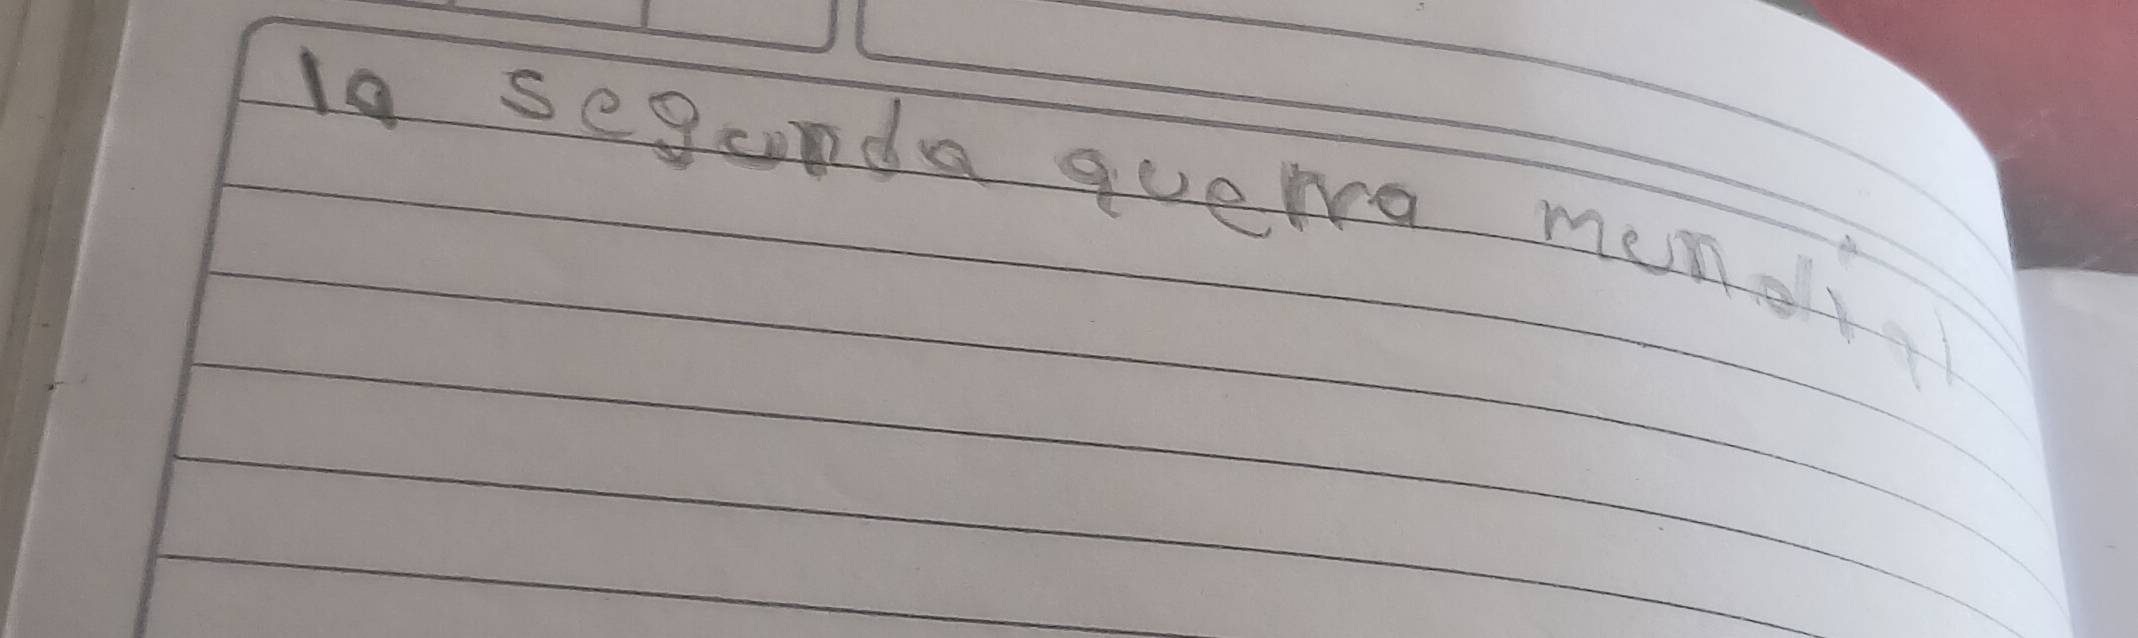 la segunda guerra mundial